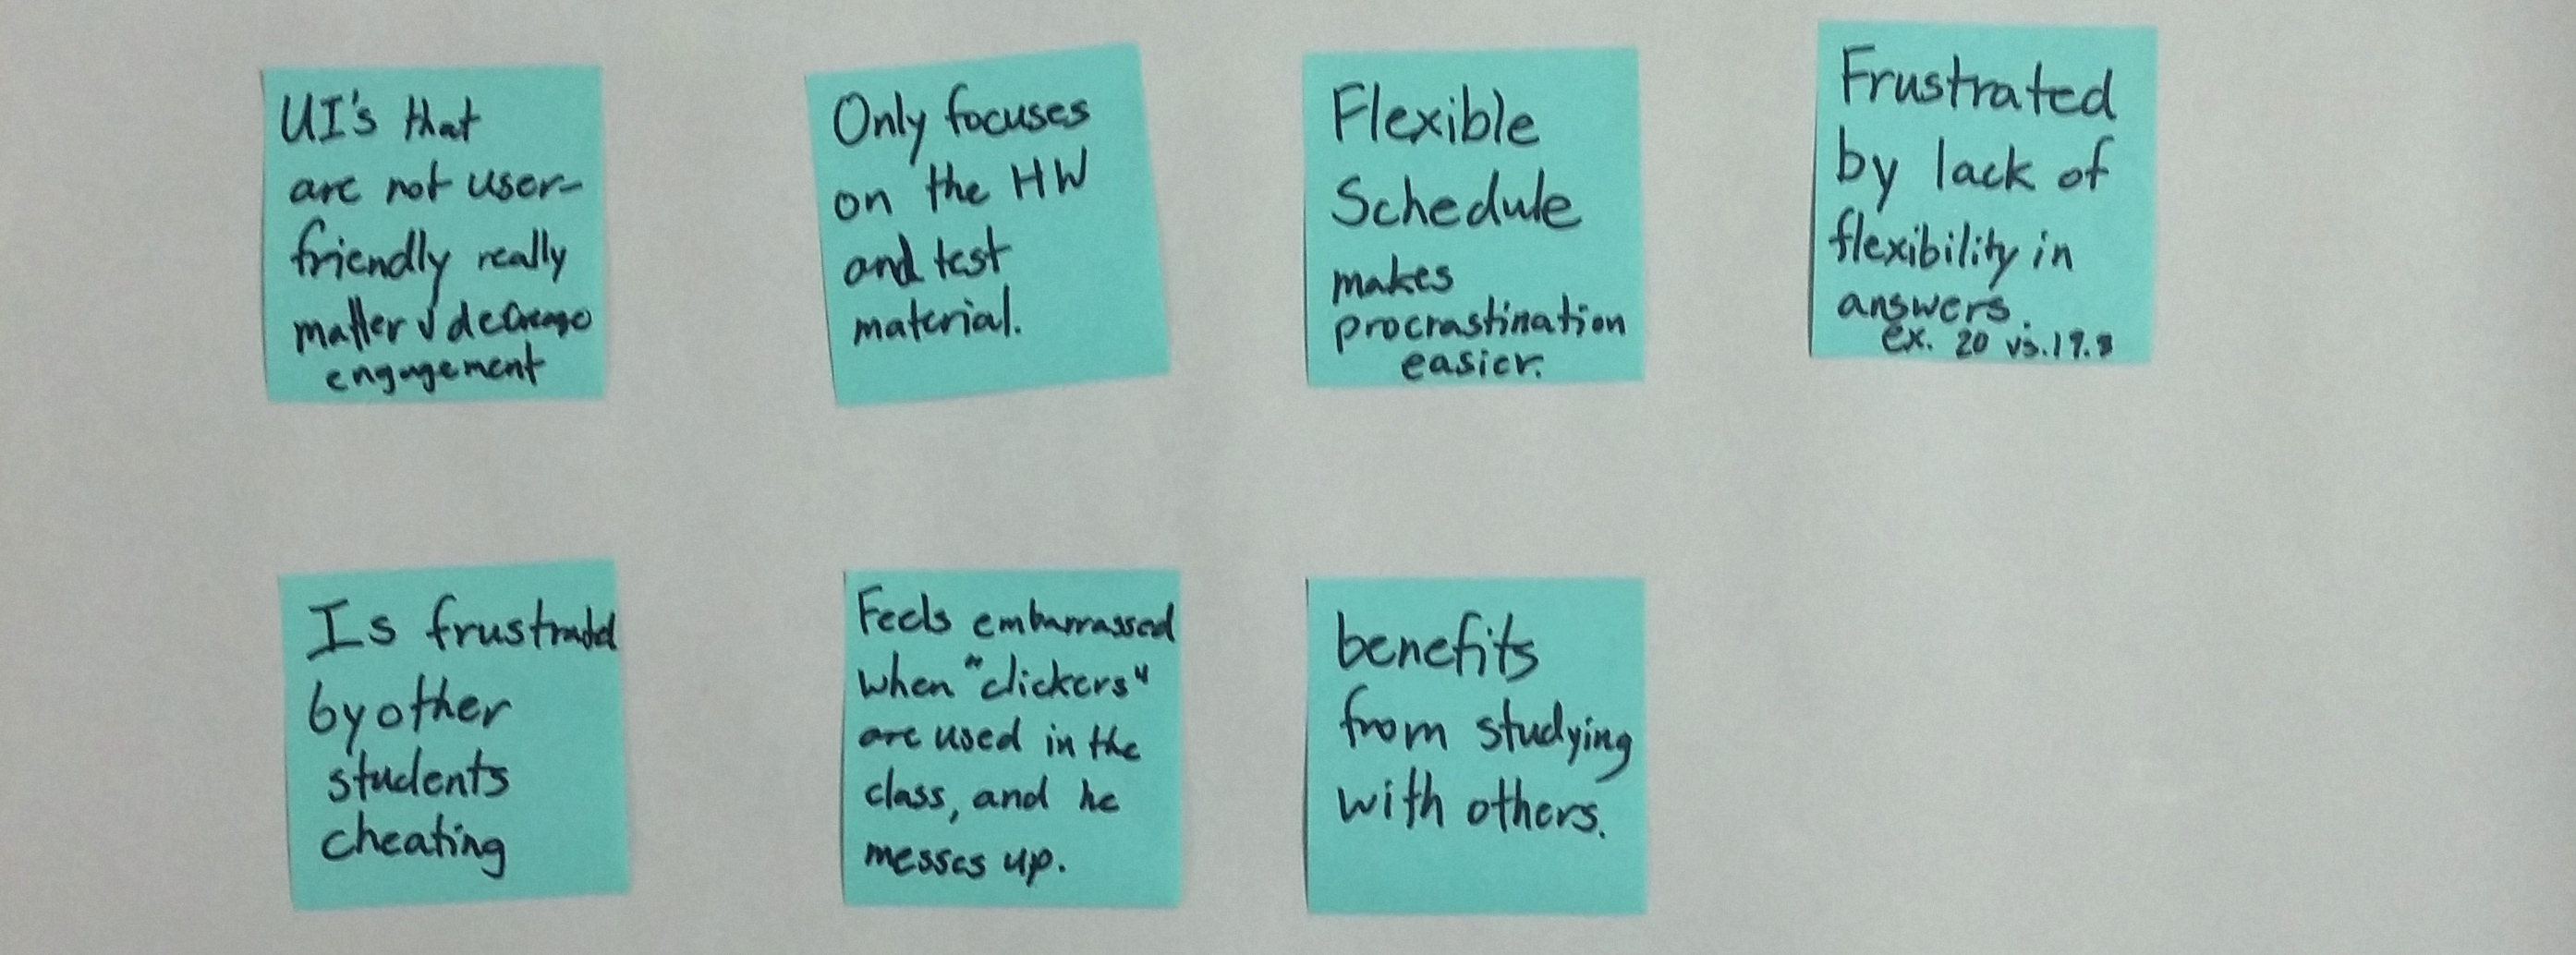 UI's that
are not user-
friendly really
matter & decrease
engagement
Only focuses
on the HW
and test
material.
Flexible
Schedule
makes
procrastination
easier.
Frustrated
by lack of
flexibility in
answers.
ex. 20 vs. 19.8
Is frustrated
by other
students
cheating
Feels embarrassed
when "clickers"
are used in the
class, and he
messes up.
benefits
from studying
with others.